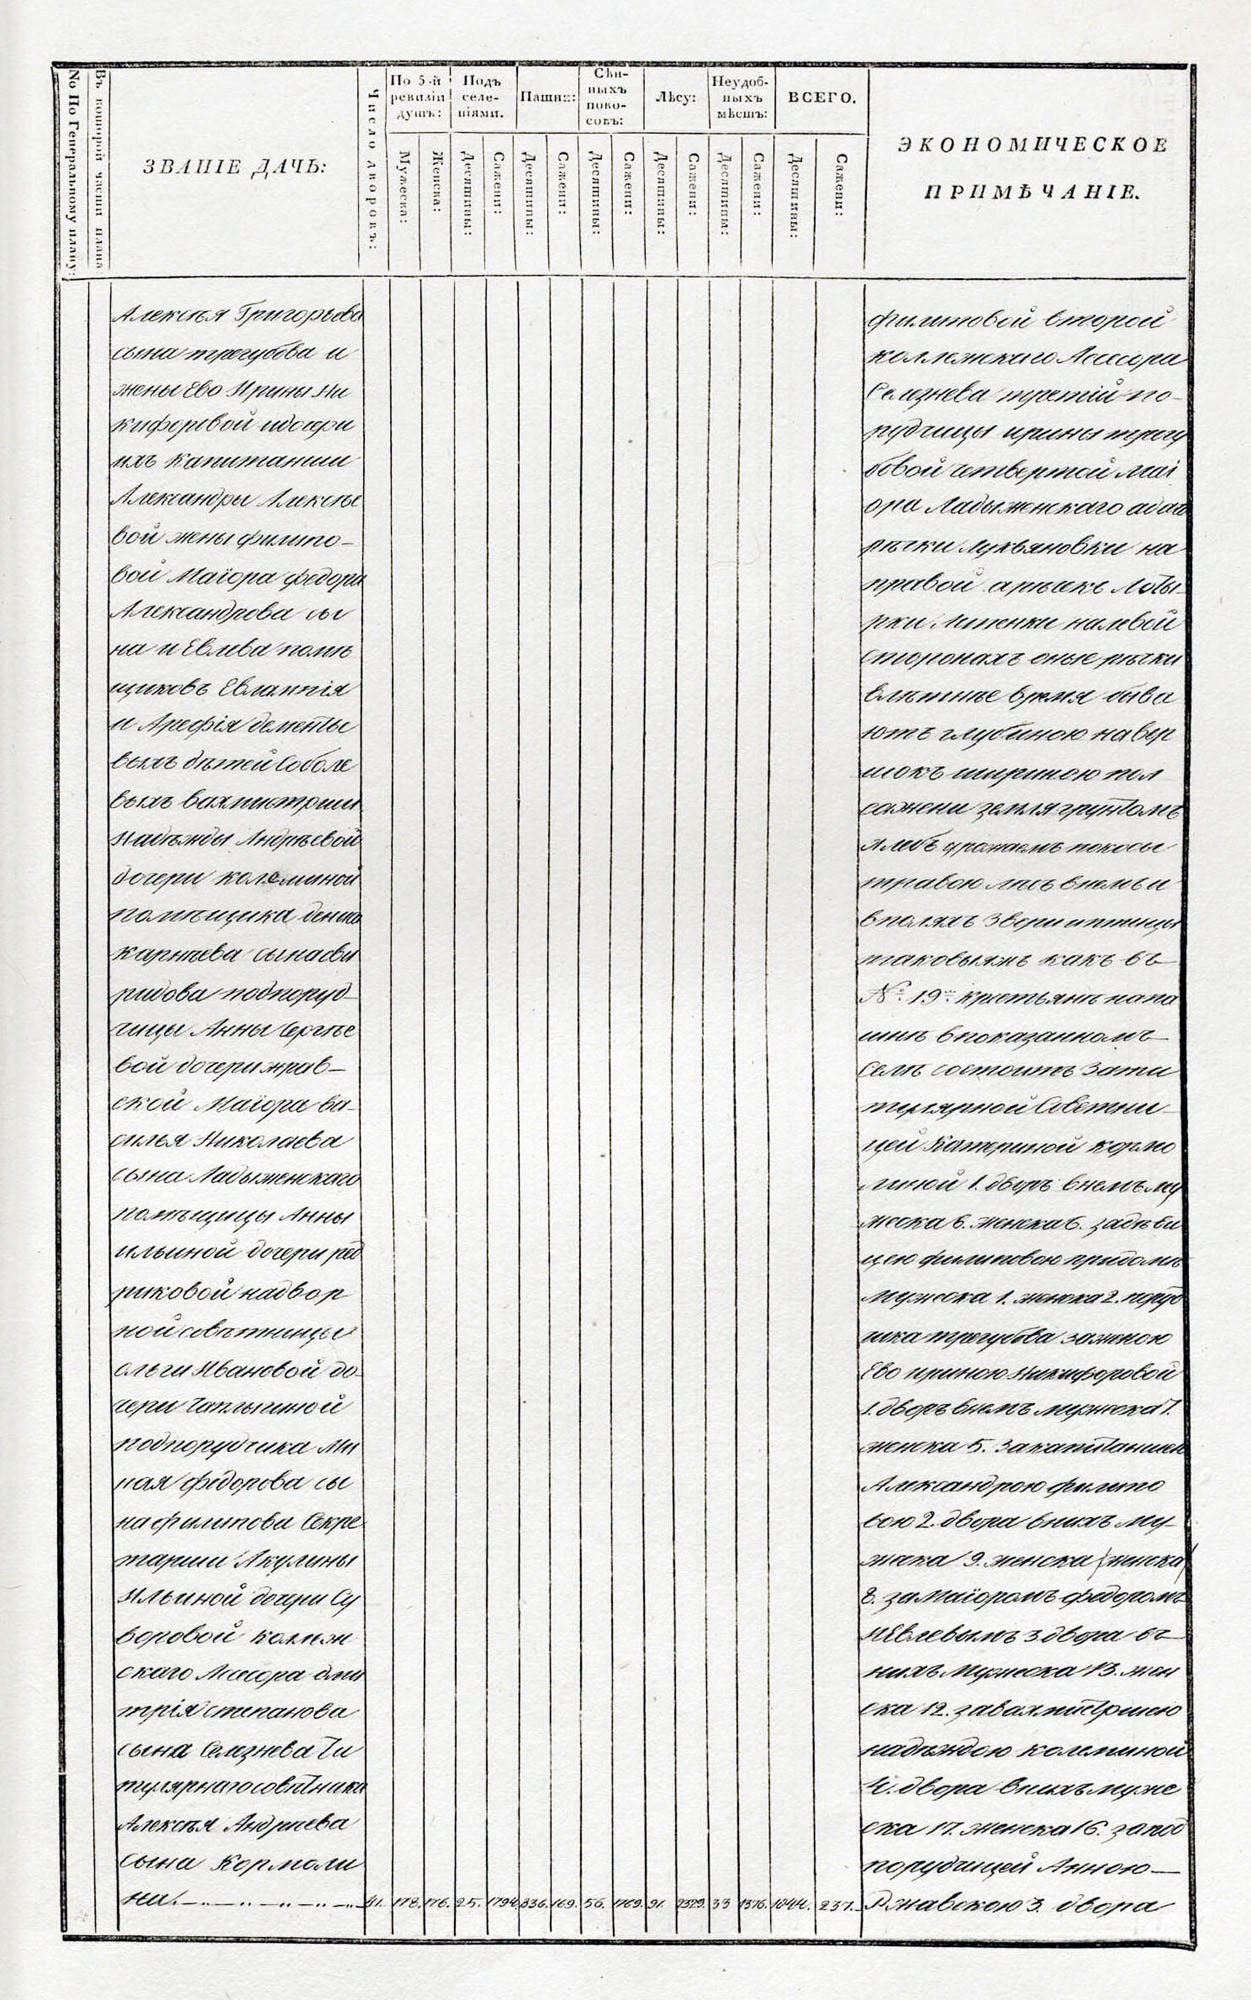 No По Генеральному плану:
Въ которой части плана
ЗВАНIЕ ДАЧЬ:
Число дворовъ:
По 5-й ревизiи душъ:
Мужеска:
Женска:
Подъ селе-нiями.
Десятины:
Сажени:
Пашни:
Десятины:
Сажени:
Сѣн-ныхъ поко-совъ:
Десятины:
Сажени:
Лѣсу:
Десятины:
Сажени:
Неудоб-ныхъ мѣстъ:
Десятины:
Сажени:
ВСЕГО.
Десятины:
Сажени:
ЭКОНОМИЧЕСКОЕ
ПРИМѢЧАНIЕ.
Алексѣя Григорьева
сына трегубова и
жены Ево Ирины Ни
кифоровой идочери
ихъ капитанши
Александры Алексѣе
вой жены филипо-
вой Маiора федора
Александрова сы
на и Евлева помѣ
щиковъ Евлампiя
и Арефiя дементье
выхъ дѣтей Соболе
выхъ вахмистрши
Надежды Андрѣевой
дочери колеминой
помѣщика дениса
карнѣева сынасви
ридова подпоруд-
чицы Анны Сергѣе
вой дочери жрав-
ской Маiора Ва-
силья Николаева
сына Ладыженскаго
помѣщицы Анны
ильиной дочери
риковой надвор
ной совѣтницы
ольги Ивановой до-
чери Чаплыгиной
подпорудчика Ми
ная федорова сы
на филипова Секре
тарши Акулины
Ильиной дочери Су
воровой колеж
скаго Асесора дми
трiя степанова
сына Селезнева Ти
тулярнагосовѣтника
Алексѣя Андрѣева
сына Кормоли
на. 41. 178. 176. 25. 1794. 836. 169. 56. 1769. 91. 2329. 33 1376. 1044. 237.
филиповой второй
коллежскаго Асесора
Селезнева третiй по-
рудчицы ирины трегу
бовой четвертой маi
ора Ладыженскаго адач
рѣчки Лукьяновки на
правой арѣчекъ Лобы-
рки Липенки налевой
сторонахъ оные рѣчки
влѣтнѣе время быва
ютъ глубиною навер
шокъ шириною пол
сажени земля грунтомъ
хлебъ урожаемъ покосы
травою лѣсъ внемъ и
вполяхъ Звери иптицы
таковыяжъ какъ въ
№ 19м крестьянъ напа
шнѣ впоказанномъ
Селѣ состоитъ Зати
тулярной Советни-
цей Катериной кормо
линой 1. дворъ внемъ му
жеска 6. женска 6. задѣви
цею филиповою придомѣ
мужеска 1. женска 2. поруд
чика трегубова заженою
Ево ириною Никифоровой
1. дворъ внемъ мужеска 7.
женска 5. Закапитаншею
Александрою филипо
вою 2. двора вних му-
жеска 9. женска (женска)
8. заМаiоромъ федоромъ
иЕвлевымъ 3. двора въ
нихъ Мужеска 13. жен
ска 12. завахмистршею
надеждою колеминой
4. двора внихъ муже
ска 17. женска 16. запод
порудчицей Анною
Ржавскою 3. двора